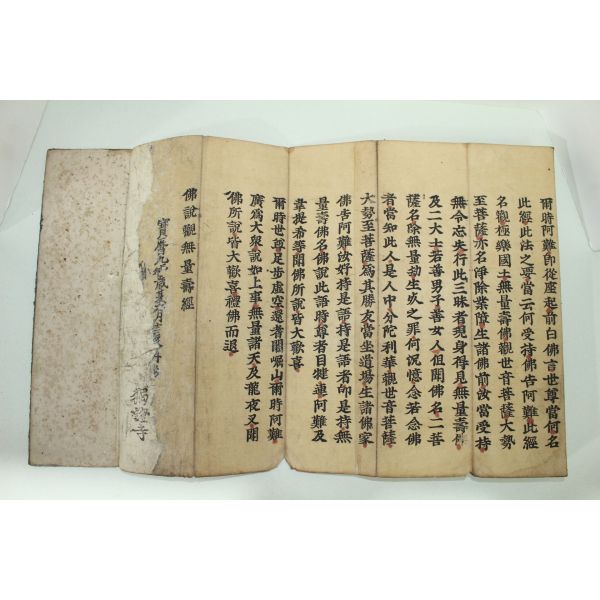 爾時阿難即從座起前白佛言世尊當何名
此經此法之要當云何受持佛告阿難此經
名觀極樂國土無量壽佛觀世音菩薩大勢
至菩薩亦名淨除業障生諸佛前汝當受持
無令忘失行此三昧者現身得見無量壽佛
及二大士若善男子善女人但聞佛名二菩
薩名除無量劫生死之罪何況憶念若念佛
者當知此人是人中分陀利華觀世音菩薩
大勢至菩薩為其勝友當坐道場生諸佛家
佛告阿難汝好持是語持是語者即是持無
量壽佛名佛說此語時尊者目揵連阿難及
韋提希等聞佛所說皆大歡喜
爾時世尊足步虛空還耆闍崛山爾時阿難
廣為大眾說如上事無量諸天及龍夜叉聞
佛所說皆大歡喜禮佛而退
佛說觀無量壽經
寶曆九 歲 月
寺